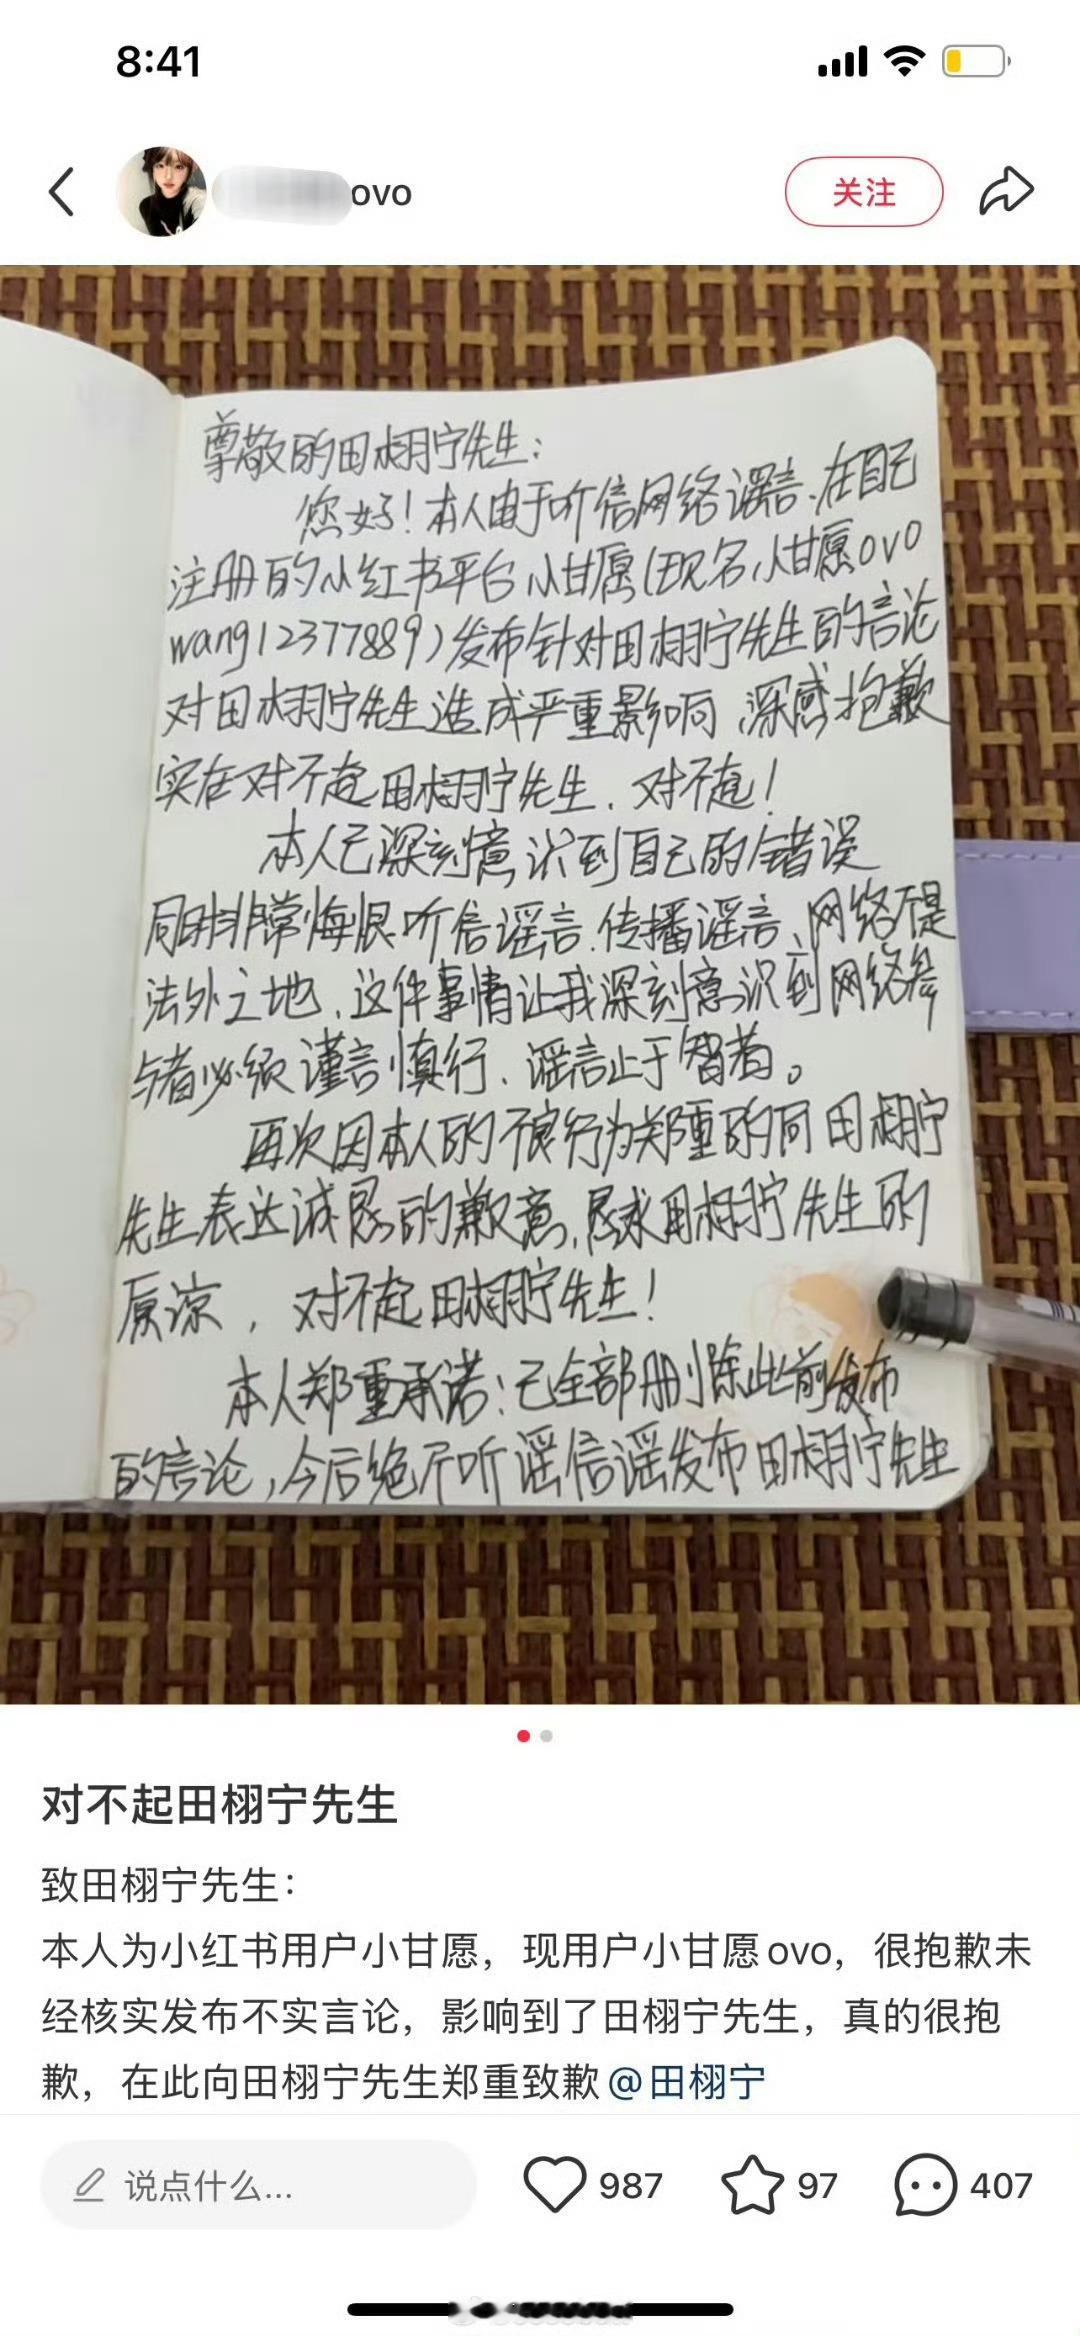 8:41
ovo
关注
尊敬的田栩宁先生：
您好！本人由于听信网络谣言、在自己
注册的小红书平台小甘愿(现名小甘愿ovo
wang12377889)发布针对田栩宁先生的言论
对田栩宁先生造成严重影响、深感抱歉
实在对不起田栩宁先生、对不起！
本人已深刻意识到自己的错误
同时非常悔恨听信谣言、传播谣言、网络不是
法外之地、这件事情让我深刻意识到网络参
与者必须谨言慎行、谣言止于智者。
再次因本人的不良行为郑重的向田栩宁
先生表达诚恳的歉意，恳求田栩宁先生的
原谅，对不起田栩宁先生！
本人郑重承诺：已全部删除此前发布
的言论，今后绝不听谣信谣发布田栩宁先生
对不起田栩宁先生
致田栩宁先生：
本人为小红书用户小甘愿，现用户小甘愿ovo，很抱歉未
经核实发布不实言论，影响到了田栩宁先生，真的很抱
歉，在此向田栩宁先生郑重致歉@田栩宁
说点什么...
987
97
407